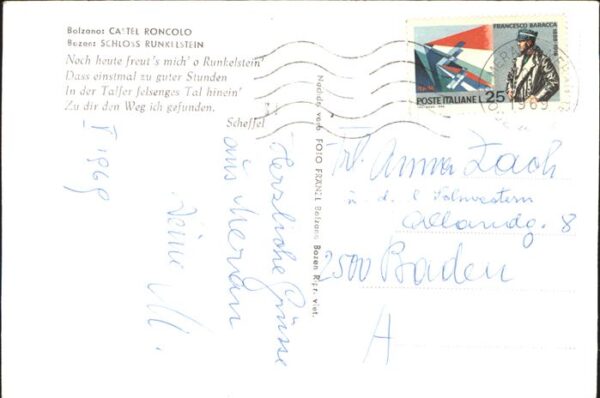 Bolzano: CASTEL RONCOLO
Bozen: SCHLOSS RUNKELSTEIN
Noch heute freut's mich' o Runkelstein
Dass einstmal zu guter Stunden
In der Talfer felsenges Tal hinein'
Zu dir den Weg ich gefunden.
Scheffel
V 1969
Herzliche Grüsse
aus Meran
Nachdr. verb. FOTO FRÄNZL Bolzano Bozen Ripr. viet.
FRANCESCO BARACCA
1888-1918
POSTE ITALIANE L.25
1969
Anna Zach
2500 Baden
A